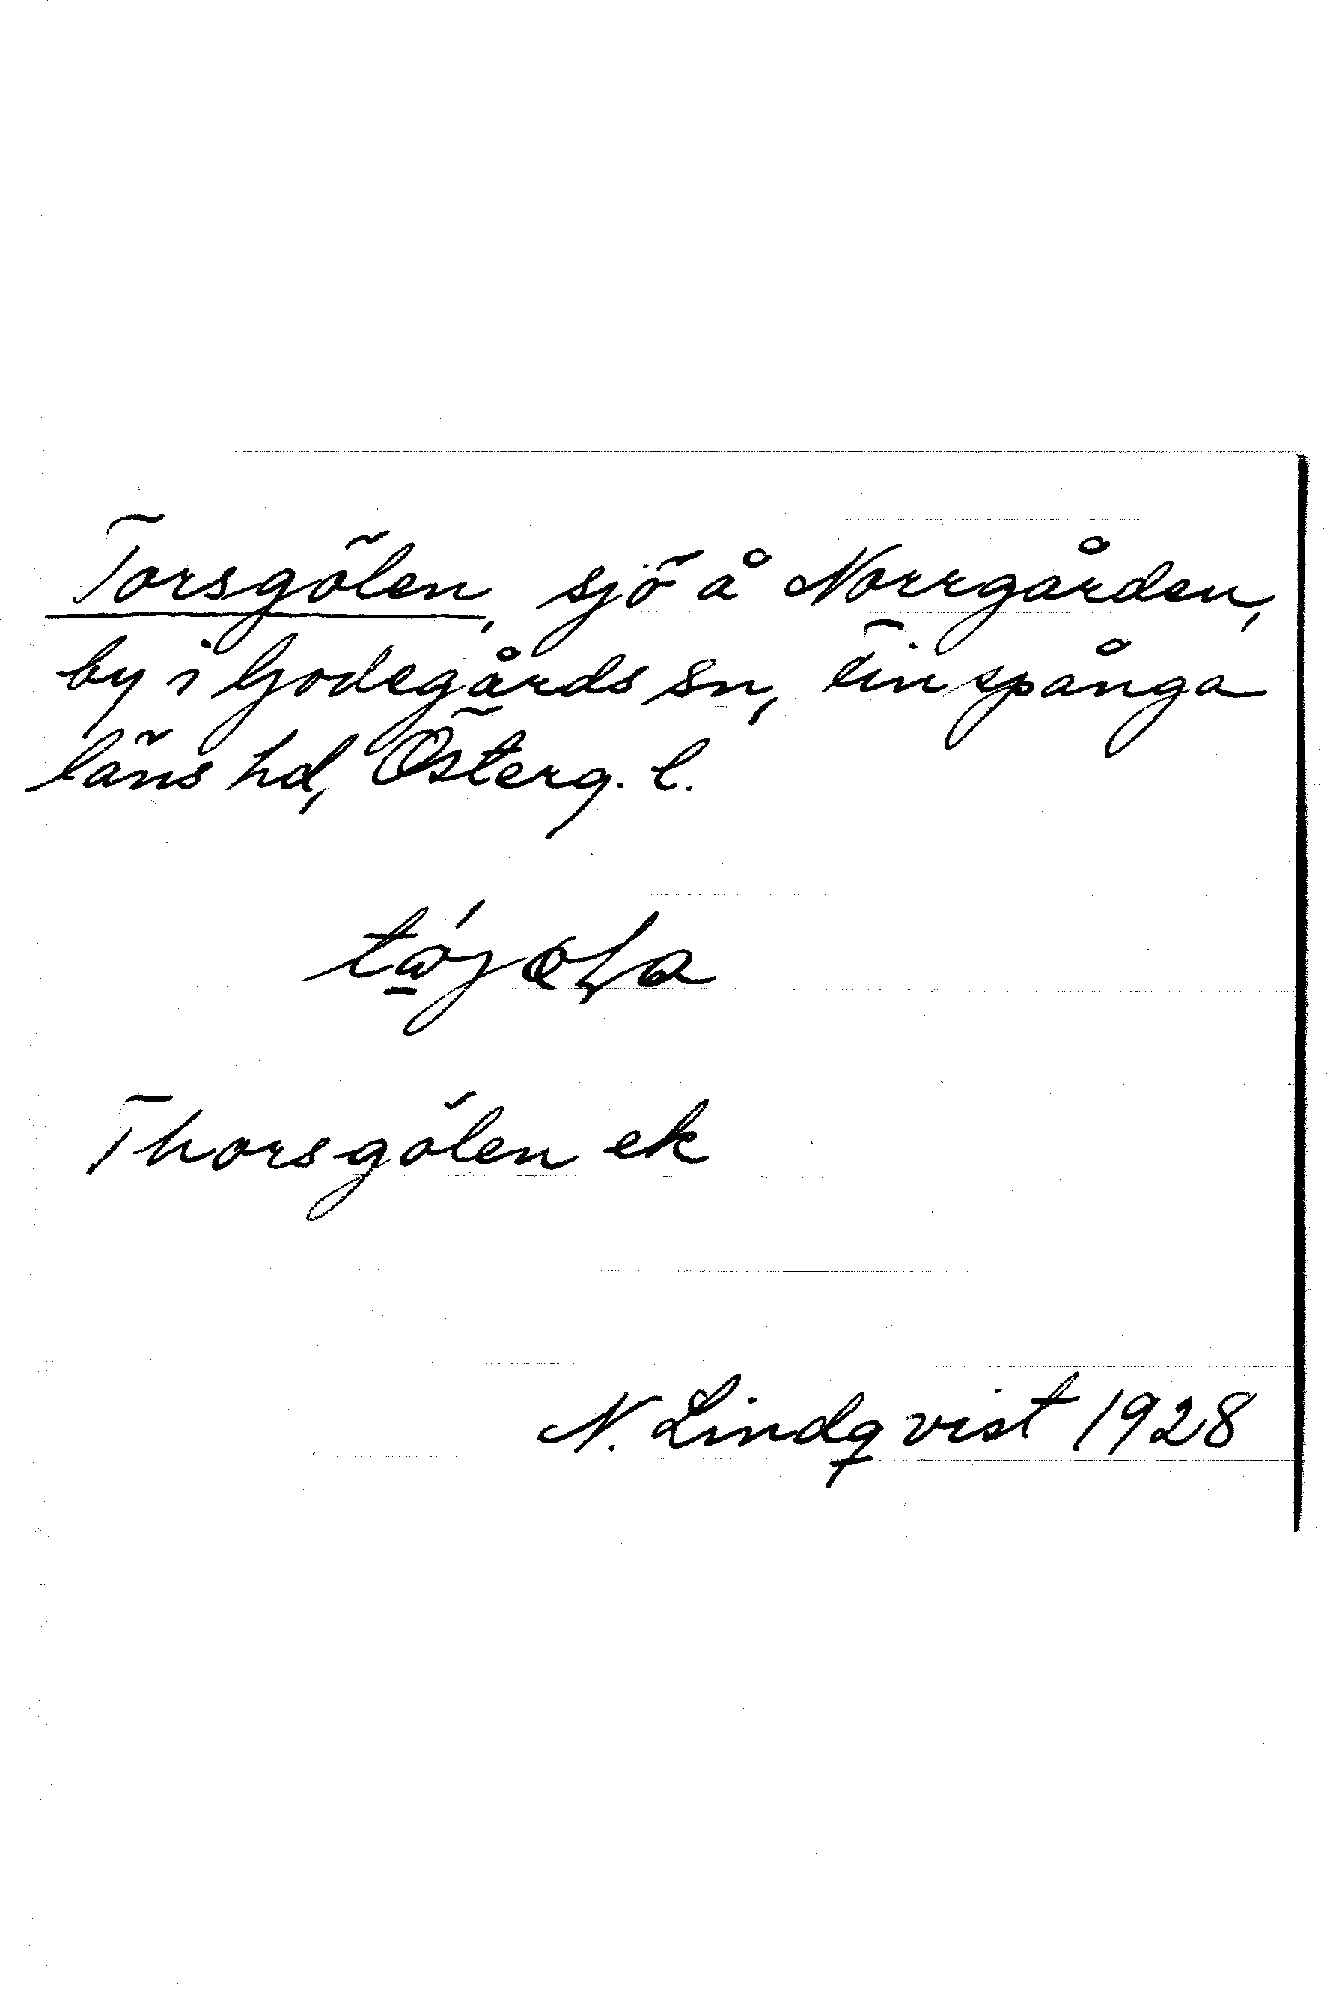 Torsgölen, sjö å Norrgården,
by i Godegårds sn, Finspånga
läns hd, Österg. l.
Thorsgölen ek
N. Lindqvist 1928